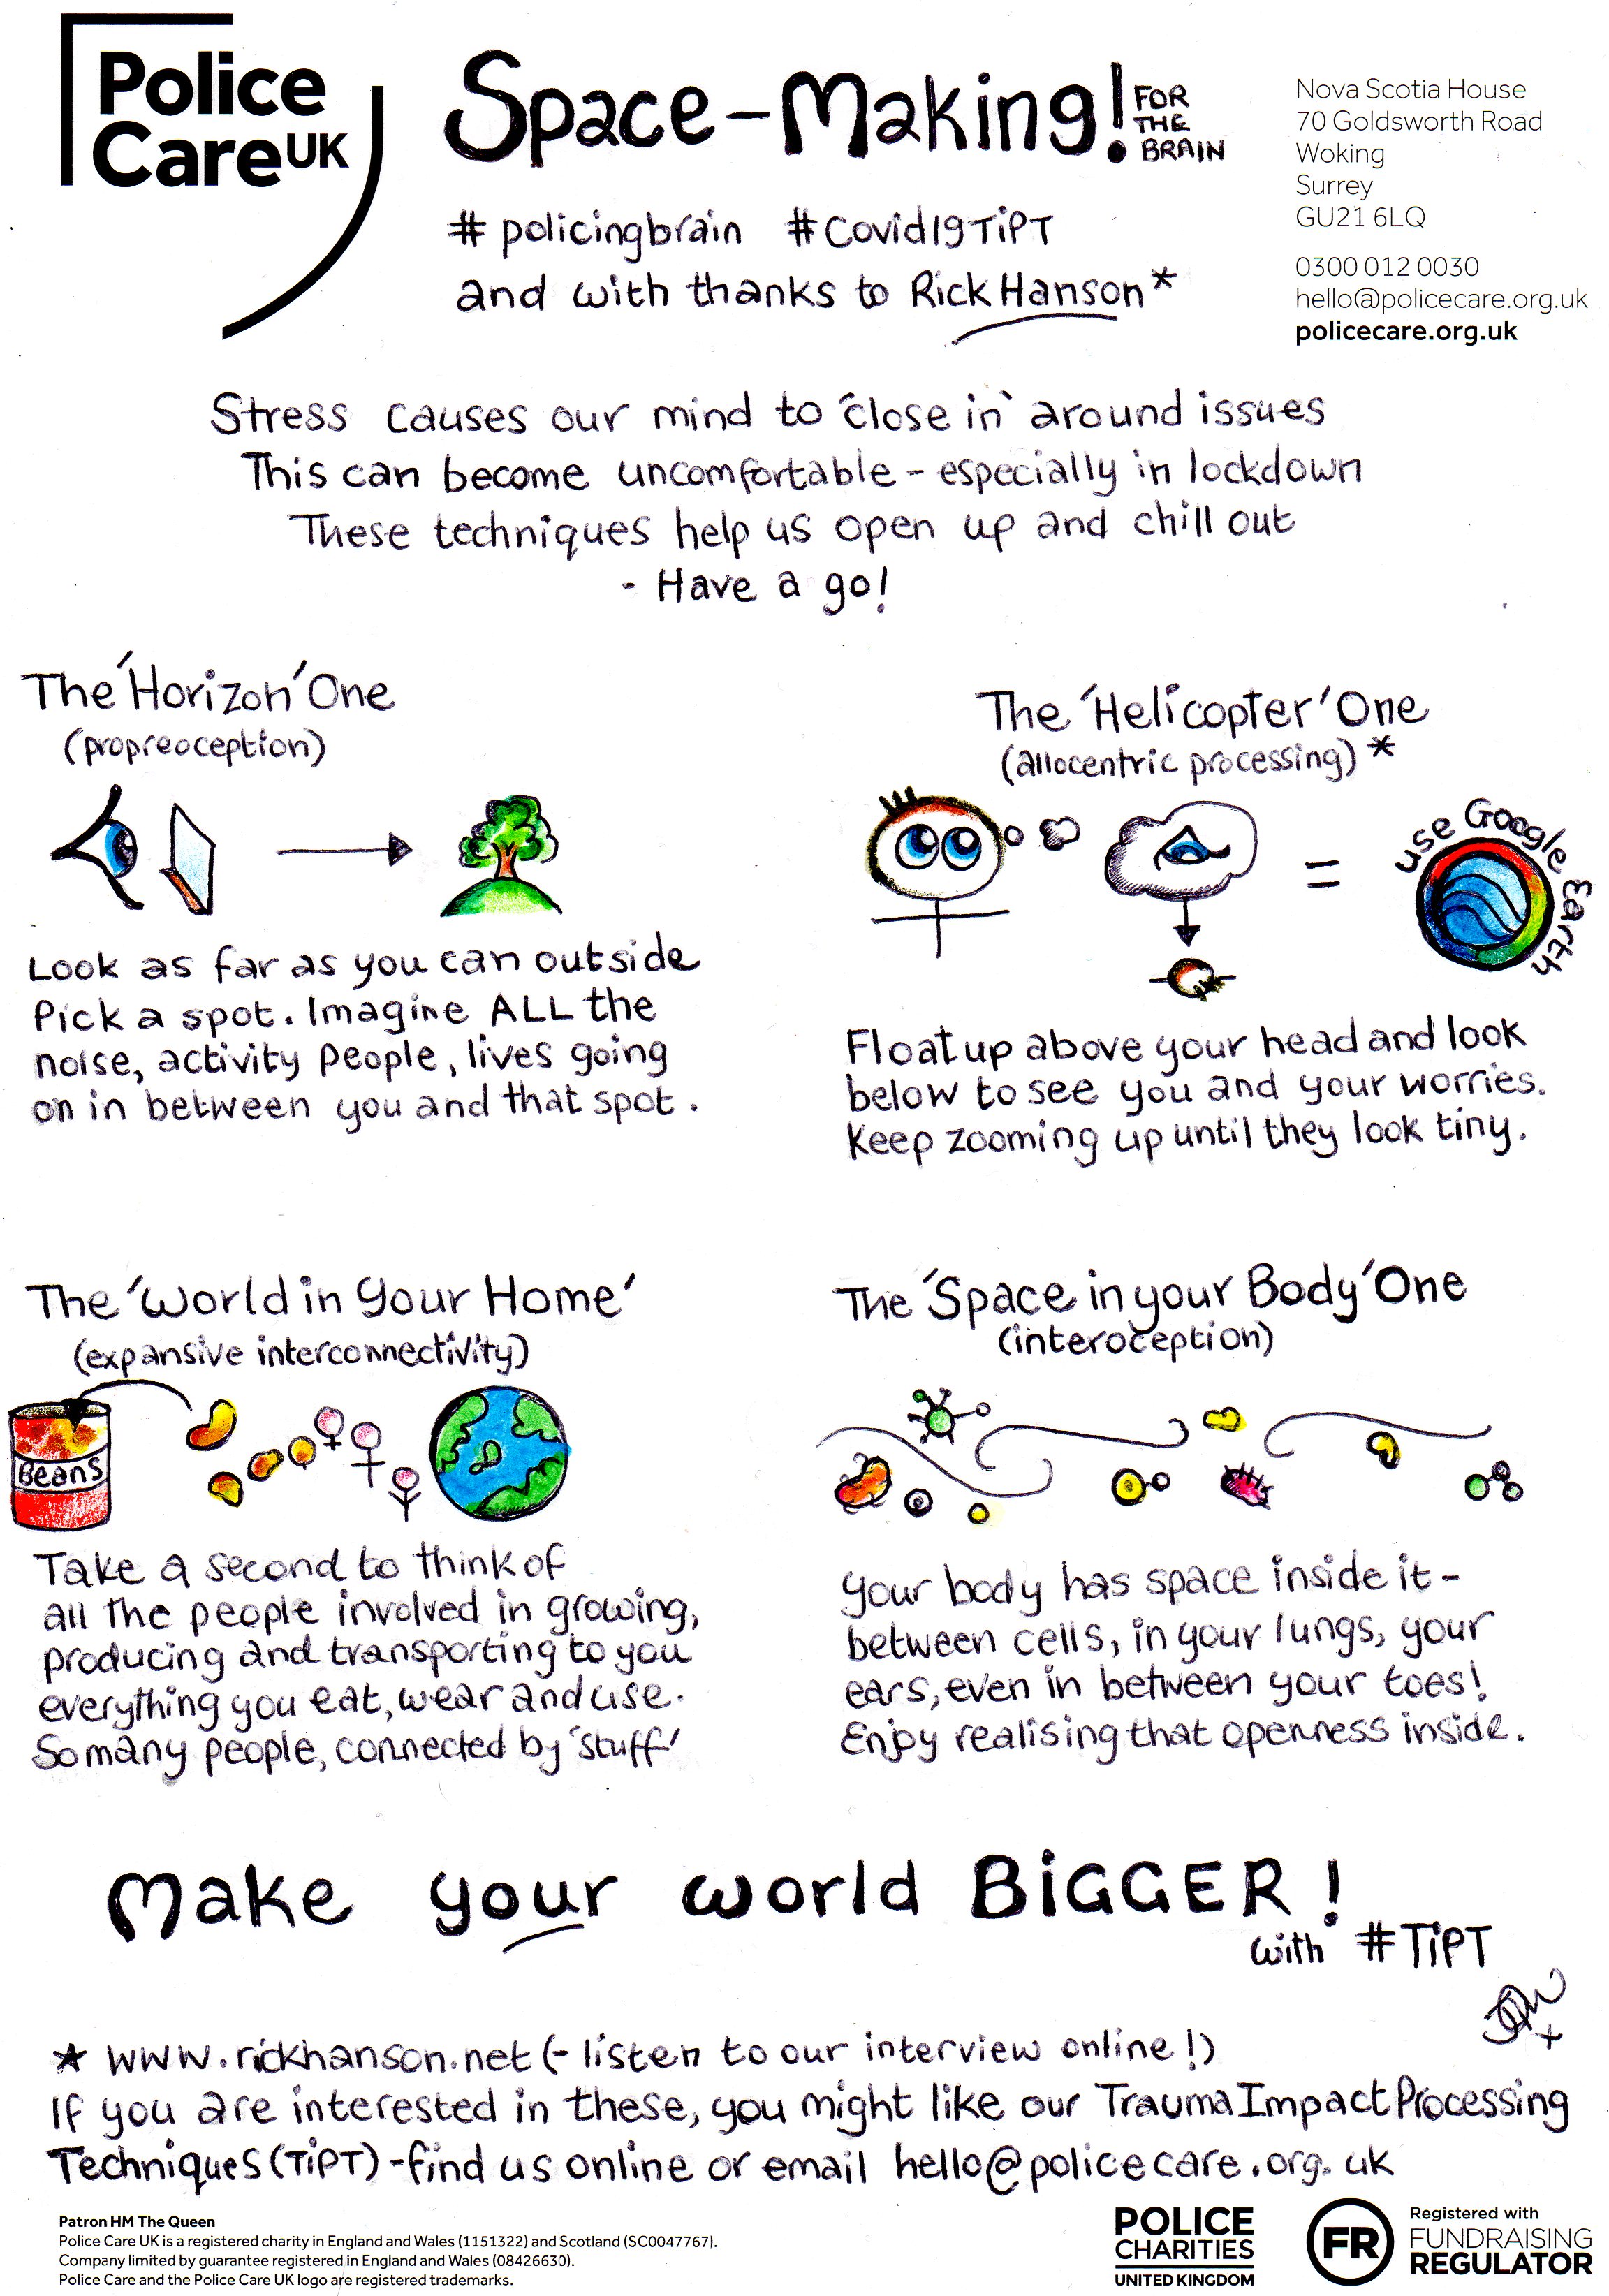 Police
Care UK
Space-Making! FOR THE BRAIN
Nova Scotia House
70 Goldsworth Road
Woking
Surrey
GU21 6LQ
0300 012 0030
hello@policecare.org.uk
policecare.org.uk
# policingbrain #Covid19TiPT
and with thanks to Rick Hanson*
Stress causes our mind to 'close in' around issues
This can become uncomfortable - especially in lockdown
These techniques help us open up and chill out
- Have a go!
The 'Horizon' One
(propreoception)
Look as far as you can outside
Pick a spot. Imagine ALL the
noise, activity people, lives going
on in between you and that spot.
The 'Helicopter' One
(allocentric processing) *
=
use Google Earth
Float up above your head and look
below to see you and your worries.
Keep zooming up until they look tiny.
The 'World in Your Home'
(expansive interconnectivity)
Beans
Take a second to think of
all the people involved in growing,
producing and transporting to you
everything you eat, wear and use.
So many people, connected by 'stuff'
The 'Space in your Body' One
(interoception)
Your body has space inside it -
between cells, in your lungs, your
ears, even in between your toes!
Enjoy realising that openness inside.
Make your world BiGGER!
with #TiPT
* www.rickhanson.net (- listen to our interview online!)
If you are interested in these, you might like our Trauma Impact Processing
Techniques (TiPT) - find us online or email hello@policecare.org.uk
Patron HM The Queen
Police Care UK is a registered charity in England and Wales (1151322) and Scotland (SC0047767).
Company limited by guarantee registered in England and Wales (08426630).
Police Care and the Police Care UK logo are registered trademarks.
POLICE
CHARITIES
UNITED KINGDOM
FR
Registered with
FUNDRAISING
REGULATOR